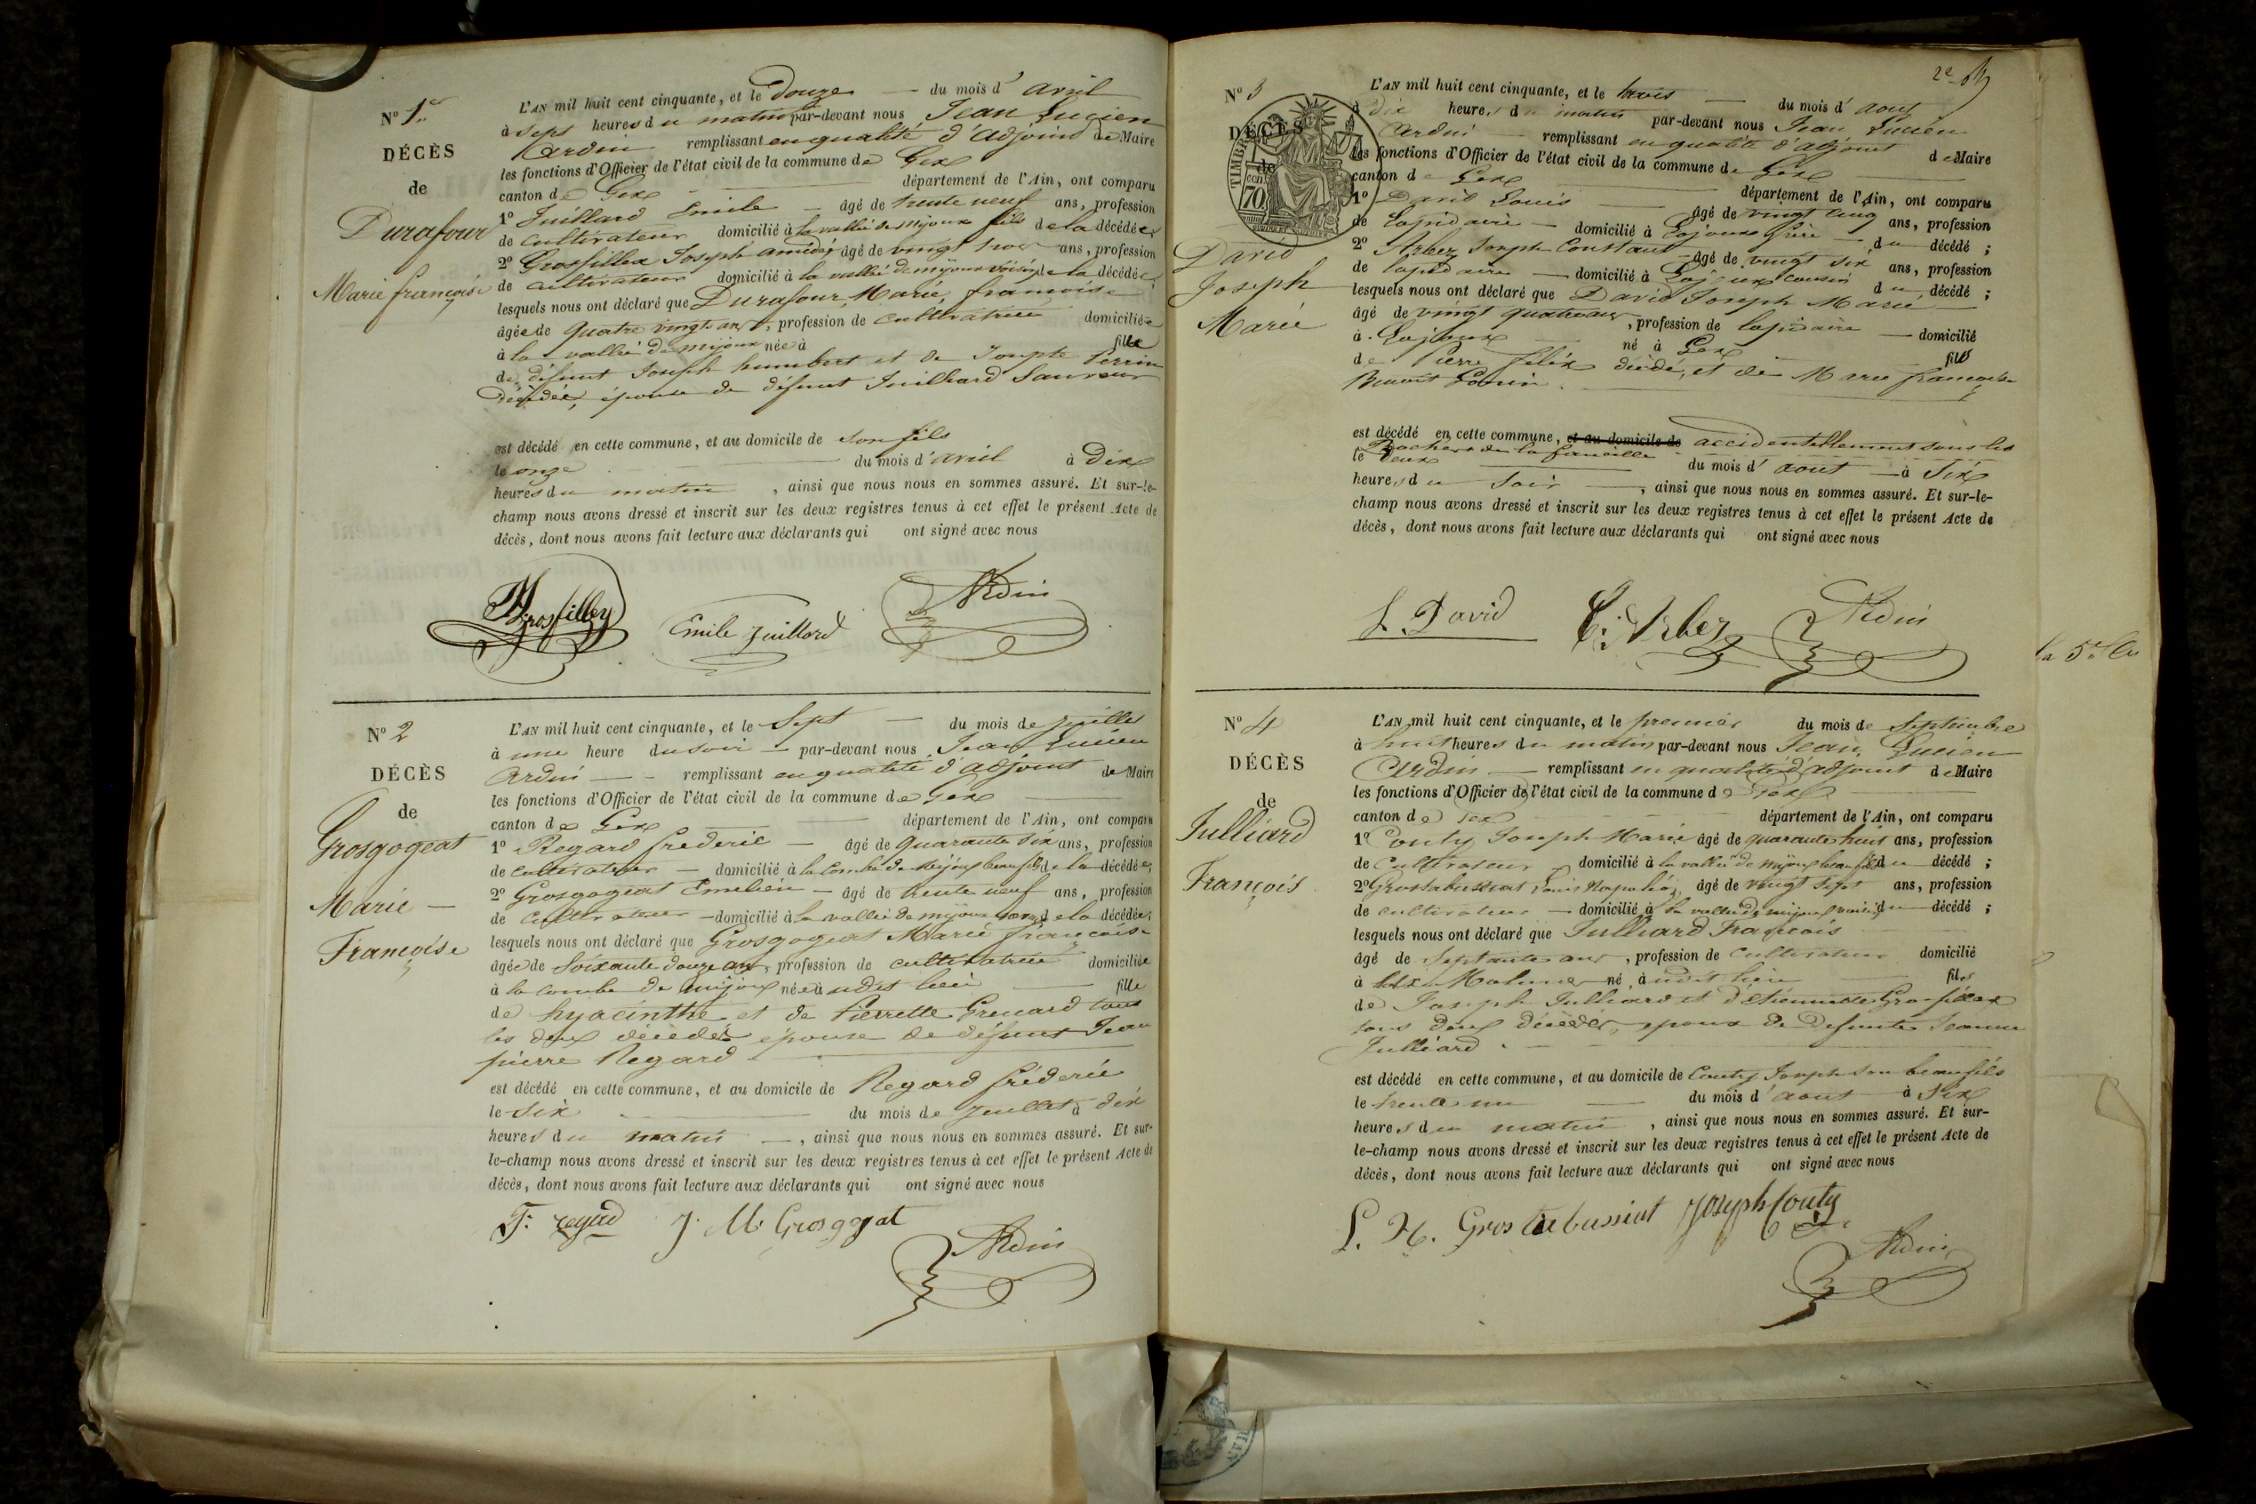 N° 1er
DÉCÈS
de
Durafour
Marie françoise
L'AN mil huit cent cinquante, et le Douze du mois d'avril
à sept heures du matin par-devant nous Jean Lucien
Ardin remplissant en qualité d'adjoint de Maire
les fonctions d'Officier de l'état civil de la commune de Gex
canton de Gex département de l'Ain, ont comparu
1° Juillard Emile âgé de trente neuf ans, profession
de cultivateur domicilié à la vallée de mijoux fils de la décédée
2° Grosfillex Joseph amédé âgé de vingt trois ans, profession
de cultivateur domicilié à la vallée de mijoux voisin de la décédée;
lesquels nous ont déclaré que Durafour Marie françoise
âgée de quatre vingts ans, profession de cultivatrice domiciliée
à la vallée de mijoux née à fille
de défunt Joseph humbert et de Josephte Perrin
Décédée, épouse de défunt Juilliard Sauveur
est décédé en cette commune, et au domicile de son fils
le onze du mois d'avril à Dix
heures du matin, ainsi que nous nous en sommes assuré. Et sur-le-
champ nous avons dressé et inscrit sur les deux registres tenus à cet effet le présent Acte de
décès, dont nous avons fait lecture aux déclarants qui ont signé avec nous
Grosfilley Emile Juillard Ardin
N° 2
DÉCÈS
de
Grosgogeat
Marie
Françoise
L'AN mil huit cent cinquante, et le Sept du mois de juillet
à une heure du soir par-devant nous Jean Lucien
Ardin remplissant en qualité d'adjoint de Maire
les fonctions d'Officier de l'état civil de la commune de Gex
canton de Gex département de l'Ain, ont comparu
1° Regard frederic âgé de quarante six ans, profession
de cultivateur domicilié à la Combe de Mijoux beau fils de la décédée;
2° Grosgogeat Emelien âgé de trente neuf ans, profession
de cultivateur domicilié à la vallée de mijoux de la décédée;
lesquels nous ont déclaré que Grosgogeat Marie françoise
âgée de soixante douze ans, profession de cultivatrice domiciliée
à la combe de mijoux née à udit lieu fille
de hyacinthe et de Pierrette Grenard tous
les deux décédés épouse de défunt Jean
pierre Regard
est décédé en cette commune, et au domicile de Regard fréderic
le six du mois de juillet à dix
heures du matin, ainsi que nous nous en sommes assuré. Et sur-
le-champ nous avons dressé et inscrit sur les deux registres tenus à cet effet le présent Acte de
décès, dont nous avons fait lecture aux déclarants qui ont signé avec nous
F. regard J. M. Grosgogat
Ardin
2e
N° 3
DÉCÈS
de
TIMBRE
70
David
Joseph
Marie
L'AN mil huit cent cinquante, et le trois du mois d'aout
à dix heures du matin par-devant nous Jean Lucien
Ardin remplissant en qualité d'adjoint de Maire
les fonctions d'Officier de l'état civil de la commune de Gex
canton de Gex département de l'Ain, ont comparu
1° David Louis âgé de vingt cinq ans, profession
de lapidaire domicilié à Lajoux frère du décédé;
2° Arbez Joseph Constant âgé de vingt six ans, profession
de lapidaire domicilié à Lajoux cousin du décédé;
lesquels nous ont déclaré que David Joseph Marie
âgé de vingt quatre ans, profession de lapidaire domicilié
à Lajoux né à Gex fils
de Pierre félix décédé, et de Marie françoise
Benoit Gonin
est décédé en cette commune, et au domicile de accidentellement sous les
Rochers de la faucille
le deux du mois d'aout à six
heures du soir, ainsi que nous nous en sommes assuré. Et sur-le-
champ nous avons dressé et inscrit sur les deux registres tenus à cet effet le présent Acte de
décès, dont nous avons fait lecture aux déclarants qui ont signé avec nous
L. David C. Arbez Ardin
N° 4
DÉCÈS
de
Julliard
François
L'AN mil huit cent cinquante, et le premier du mois de Septembre
à huit heures du matin par-devant nous Jean Lucien
Ardin remplissant en qualité d'adjoint de Maire
les fonctions d'Officier de l'état civil de la commune de Gex
canton de Gex département de l'Ain, ont comparu
1° Couty Joseph Marie âgé de quarante huit ans, profession
de Cultivateur domicilié à la vallée de mijoux beau fils du décédé;
2° Grostabussiat Louis Napoléon âgé de vingt sept ans, profession
de cultivateur domicilié à la vallée de mijoux voisin du décédé;
lesquels nous ont déclaré que Julliard François
âgé de septante ans, profession de Cultivateur domicilié
à né à udit lieu fils
de Joseph Julliard et d'Etiennette Grosfillex
tous deux décédés, epoux de defunte Jeanne
Julliard
est décédé en cette commune, et au domicile de Couty Joseph son beau fils
le trente un du mois d'aout à six
heures du matin, ainsi que nous nous en sommes assuré. Et sur-
le-champ nous avons dressé et inscrit sur les deux registres tenus à cet effet le présent Acte de
décès, dont nous avons fait lecture aux déclarants qui ont signé avec nous
L. N. Grostabussiat Joseph Couty
Ardin